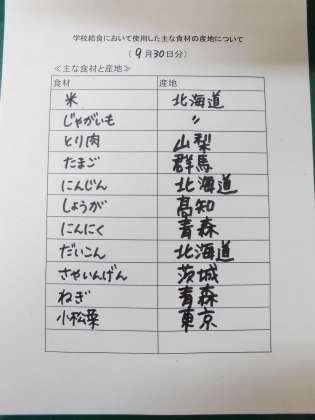 学校給食において使用した主な食材の産地について
(9月30日分)
≪主な食材と産地≫
食材 産地
米 北海道
じゃがいも 〃
とり肉 山梨
たまご 群馬
にんじん 北海道
しょうが 高知
にんにく 青森
だいこん 北海道
さやいんげん 茨城
ねぎ 青森
小松菜 東京